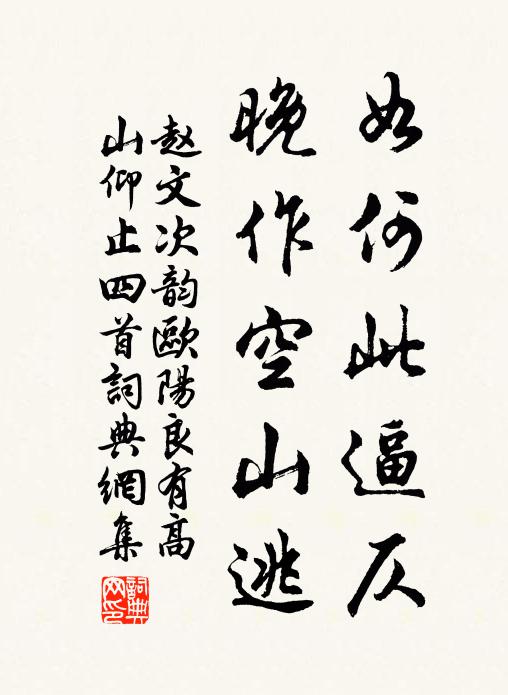 如何此逼仄
晚作空山逃
赵文次韵歐陽良有高
山仰止四首詞典網集
詞典
网印